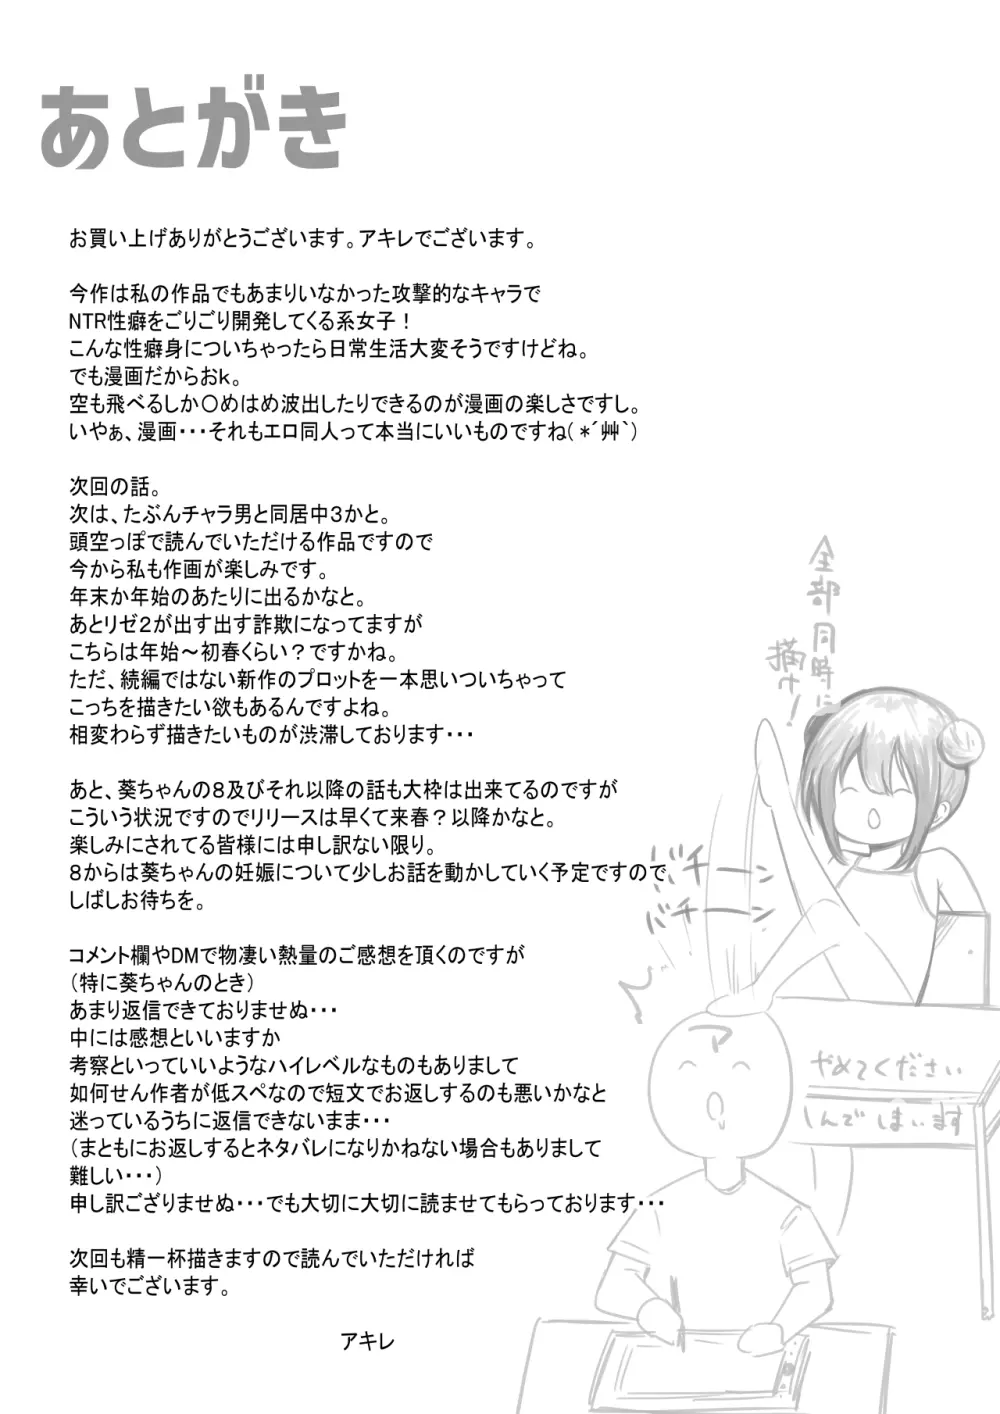 あとがき
お買い上げありがとうございます。アキレでございます。
今作は私の作品でもあまりいなかった攻撃的なキャラで
NTR性癖をごりごり開発してくる系女子！
こんな性癖身についちゃったら日常生活大変そうですけどね。
でも漫画だからおk。
空も飛べるしか〇めはめ波出したりできるのが漫画の楽しさですし。
いやぁ、漫画・・・それもエロ同人って本当にいいものですね( *´艸`)
次回の話。
次は、たぶんチャラ男と同居中３かと。
頭空っぽで読んでいただける作品ですので
今から私も作画が楽しみです。
年末か年始のあたりに出るかなと。
あとリゼ２が出す出す詐欺になってますが
こちらは年始～初春くらい？ですかね。
ただ、続編ではない新作のプロットを一本思いついちゃって
こっちを描きたい欲もあるんですよね。
相変わらず描きたいものが渋滞しております・・・
あと、葵ちゃんの８及びそれ以降の話も大枠は出来てるのですが
こういう状況ですのでリリースは早くて来春？以降かなと。
楽しみにされてる皆様には申し訳ない限り。
８からは葵ちゃんの妊娠について少しお話を動かしていく予定ですので
しばしお待ちを。
コメント欄やDMで物凄い熱量のご感想を頂くのですが
（特に葵ちゃんのとき）
あまり返信できておりませぬ・・・
中には感想といいますか
考察といっていいようなハイレベルなものもありまして
如何せん作者が低スペなので短文でお返しするのも悪いかなと
迷っているうちに返信できないまま・・・
（まともにお返しするとネタバレになりかねない場合もありまして
難しい・・・）
申し訳ござりませぬ・・・でも大切に大切に読ませてもらっております・・・
次回も精一杯描きますので読んでいただければ
幸いでございます。
アキレ
全部同時に
描け！
バチーン
バチーン
ア
やめてください
しんでしまいます